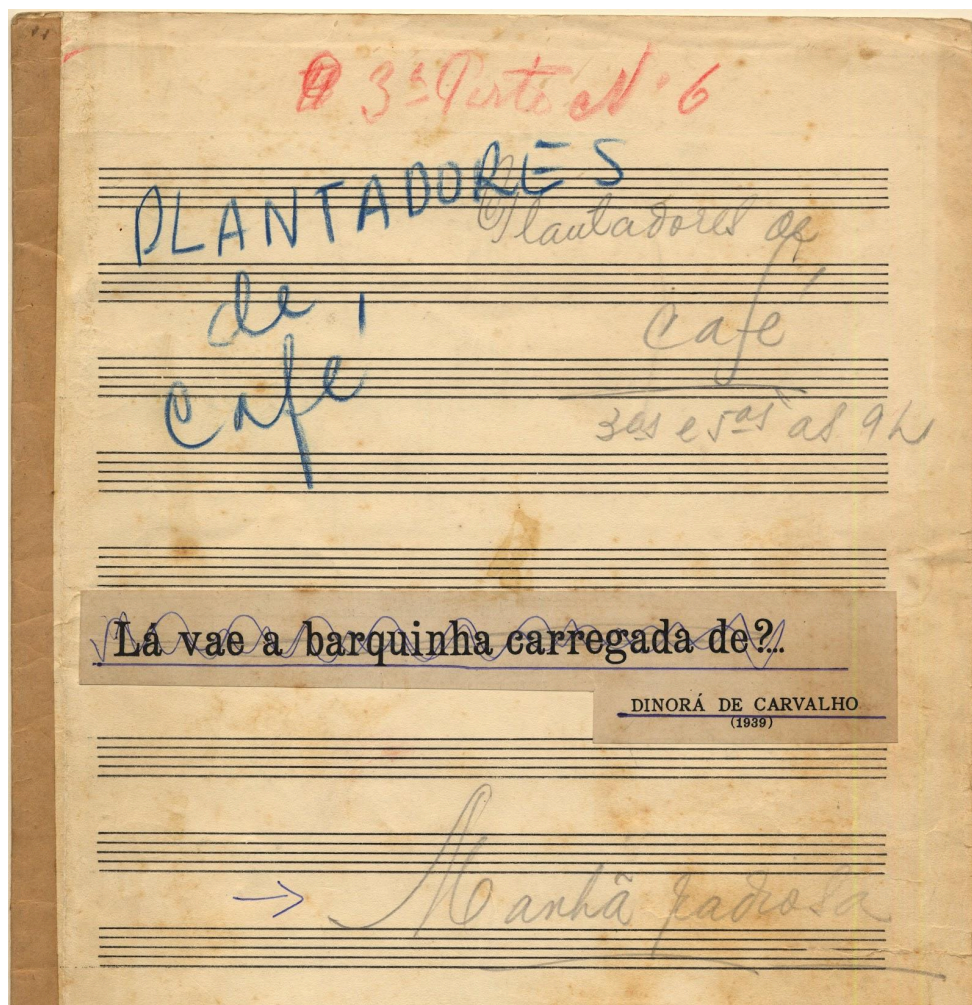 3ª Parte Nº 6
PLANTADORES
de
café
Plantadores de
café
3as e 5as às 9h
Lá vae a barquinha carregada de?...
DINORÁ DE CARVALHO
(1939)
→ Manhã radiosa